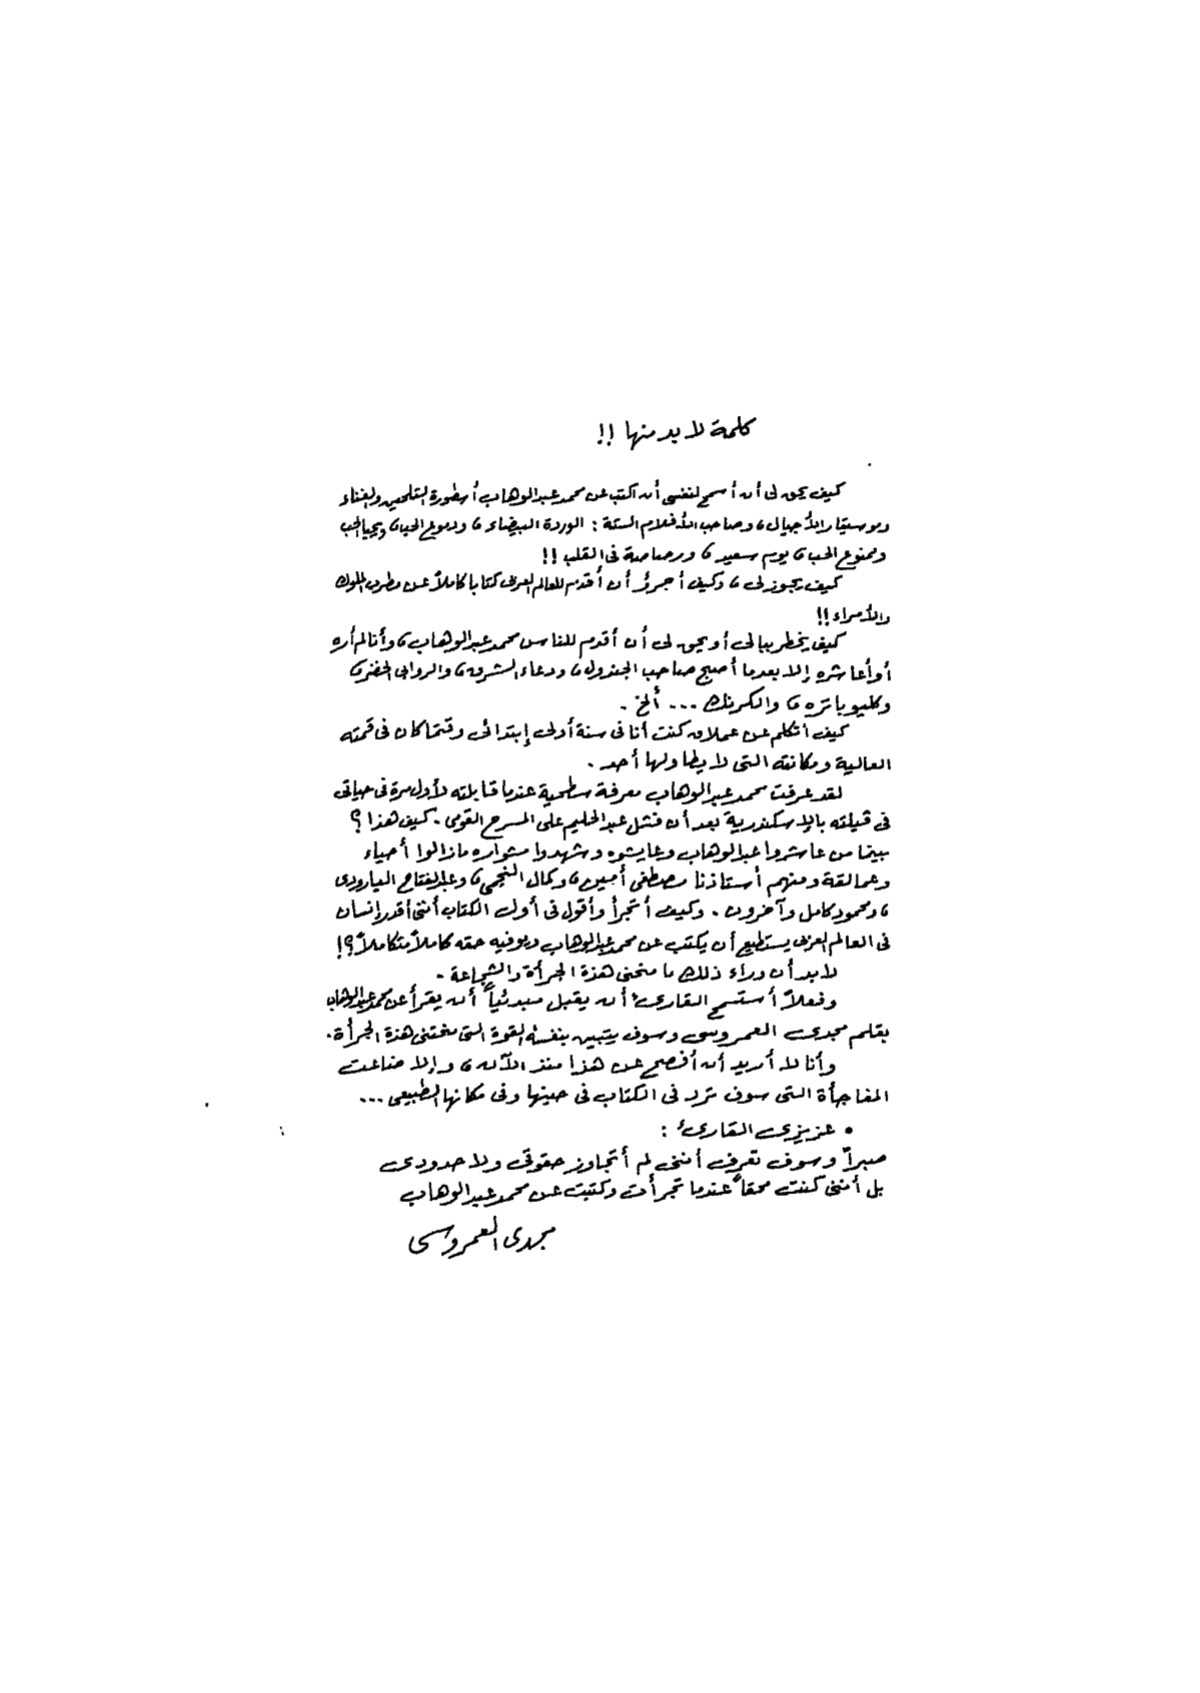 كلمة لا بد منها !!
كيف يحق لى أن أسمح لنفسى أن اكتب عن محمد عبد الوهاب أسطورة التلحين والغناء
وموسيقار الأجيال ، وصاحب الأفلام الستة : الوردة البيضاء ، ودموع الحب ، ويحيا الحب
وممنوع الحب ، يوم سعيد ، ورصاصة فى القلب !!
كيف يجوز لى ، وكيف أجرؤ أن أقدم للعالم العربى كتابا كاملاً عن مطرب الملوك
والأمراء !!
كيف يخطر ببالى أو يحق لى أن أقدم للناس محمد عبد الوهاب ، وأنا لم أره
أو أعاشره إلا بعدما أصبح صاحب الجندول ، ودعاء الشرق ، والروابى الخضرى
وكليوباتره ، والكرنك ... ألخ .
كيف أتكلم عن عملاق كنت أنا فى سنة أولى إبتدائى وقتما كان فى قمته
العالية ومكانته التى لا يطاولها أحد .
لقد عرفت محمد عبد الوهاب معرفة سطحية عندما قابلته لأول مرة فى حياتى
فى ڤيلته بالإسكندرية بعد أن فشل عبد الحليم على المسرح القومى . كيف هذا ؟
بينما من عاشروا عبد الوهاب وعايشوه وشهدوا مشواره مازالوا أحياء
وعمالقة ومنهم أستاذنا مصطفى أمين ، وكمال النجمى ، وعبد الفتاح البارودى
، ومحمود كامل وآخرون . وكيف أتجرأ وأقول فى أول الكتاب أننى أقدر إنسان
فى العالم العربى يستطيع أن يكتب عن محمد عبد الوهاب ويوفيه حقه كاملاً متكاملاً ؟!
لابد أن وراء ذلك ما منحنى هذة الجرأة والشجاعة .
وفعلاً أستسمح القارئ أن يقبل مبدئياً أن يقرأ عن محمد عبد الوهاب
بقلم مجدى العمروسى وسوف يتبين بنفسه القوة التى منحتنى هذة الجرأة .
وأنا لا أريد أن أفصح عن هذا منذ الآن ، وإلا ضاعت
المفاجأة التى سوف ترد فى الكتاب فى حينها وفى مكانها الطبيعى ...
• عزيزى القارئ :
صبراً وسوف تعرف أننى لم أتجاوز حقوقى ولا حدودى
بل أننى كنت محقاً عندما تجرأت وكتبت عن محمد عبد الوهاب
مجدى العمروسى